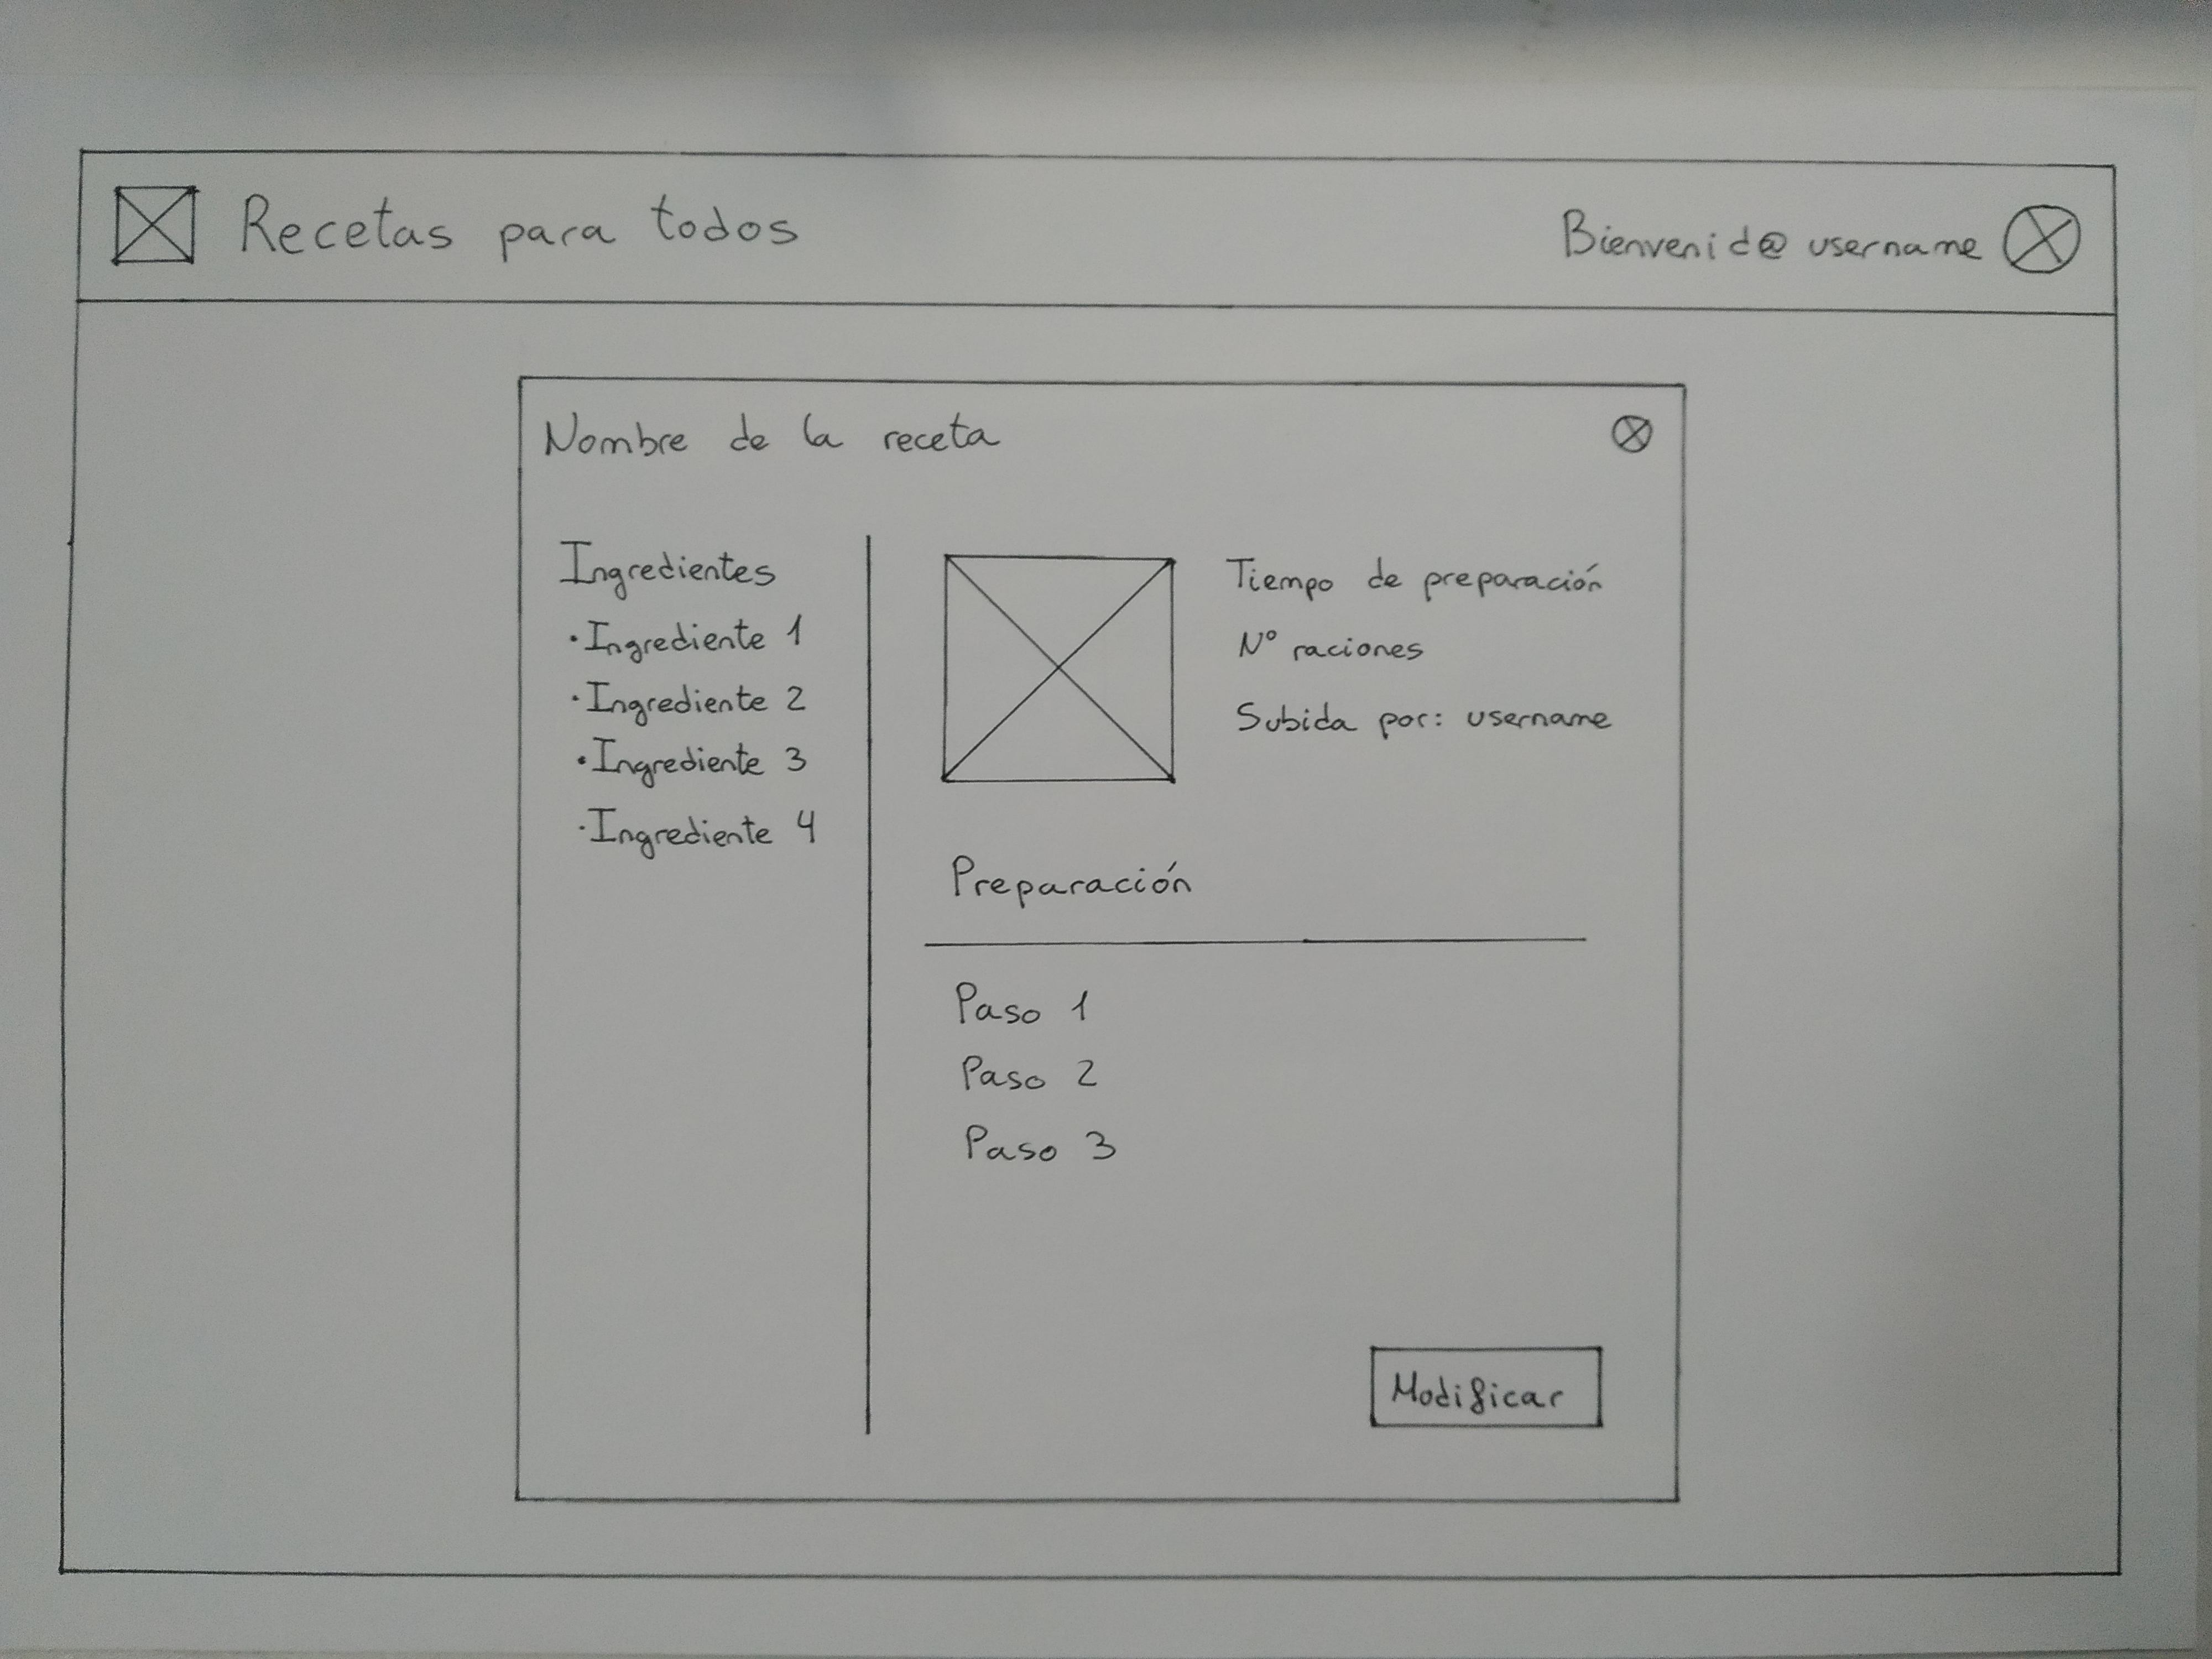 Recetas para todos
Bienvenid@ username
Nombre de la receta
Ingredientes
·Ingrediente 1
·Ingrediente 2
·Ingrediente 3
·Ingrediente 4
Tiempo de preparación
Nº raciones
Subida por: username
Preparación
Paso 1
Paso 2
Paso 3
Modificar